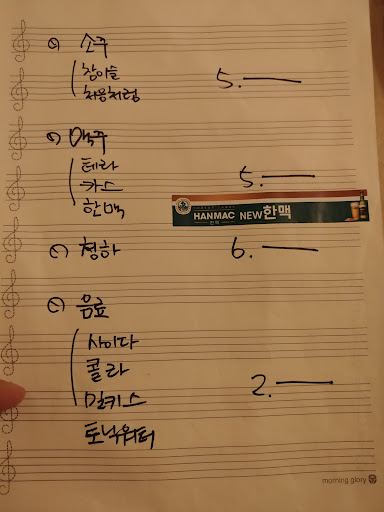 소주
참이슬
처음처럼 5.
맥주
테라
카스 5.
한맥
HANMAC NEW 한맥
청하 6.
음료
사이다
콜라
밀키스 2.
토닉워터
morning glory